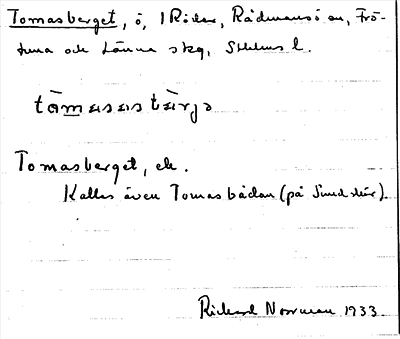 Tomasberget, ö, 1 Riden, Rådmansö sn, Frö-
tuna och Länna skg, Sthlms l.
Tomasberget, ek.
Kallas även Tomasbådan (på Sundskär).
Rickard Norrman 1933